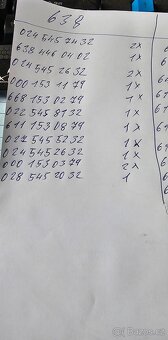 638
024 545 74 32 2x
638 446 04 02 1x
024 545 26 32 2x
000 153 11 79 1x
668 153 02 79 1x
022 545 81 32 1x
611 153 08 79 1x
027 545 52 32 1x
024 545 26 32 1x
000 153 03 79 2x
028 545 20 32 1